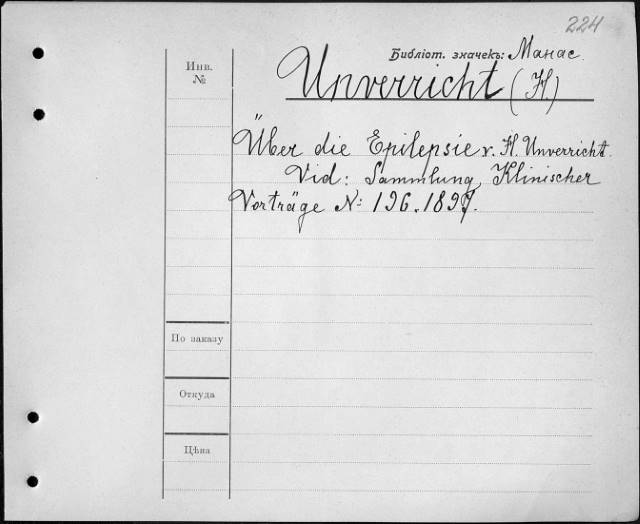 224
Библiот. значекъ: Манас.
Инв.
№
Unverricht (H)
Über die Epilepsie v. H. Unverricht.
Vid: Sammlung Klinischer
Vorträge №: 196. 1897.
По заказу
Откуда
Цѣна